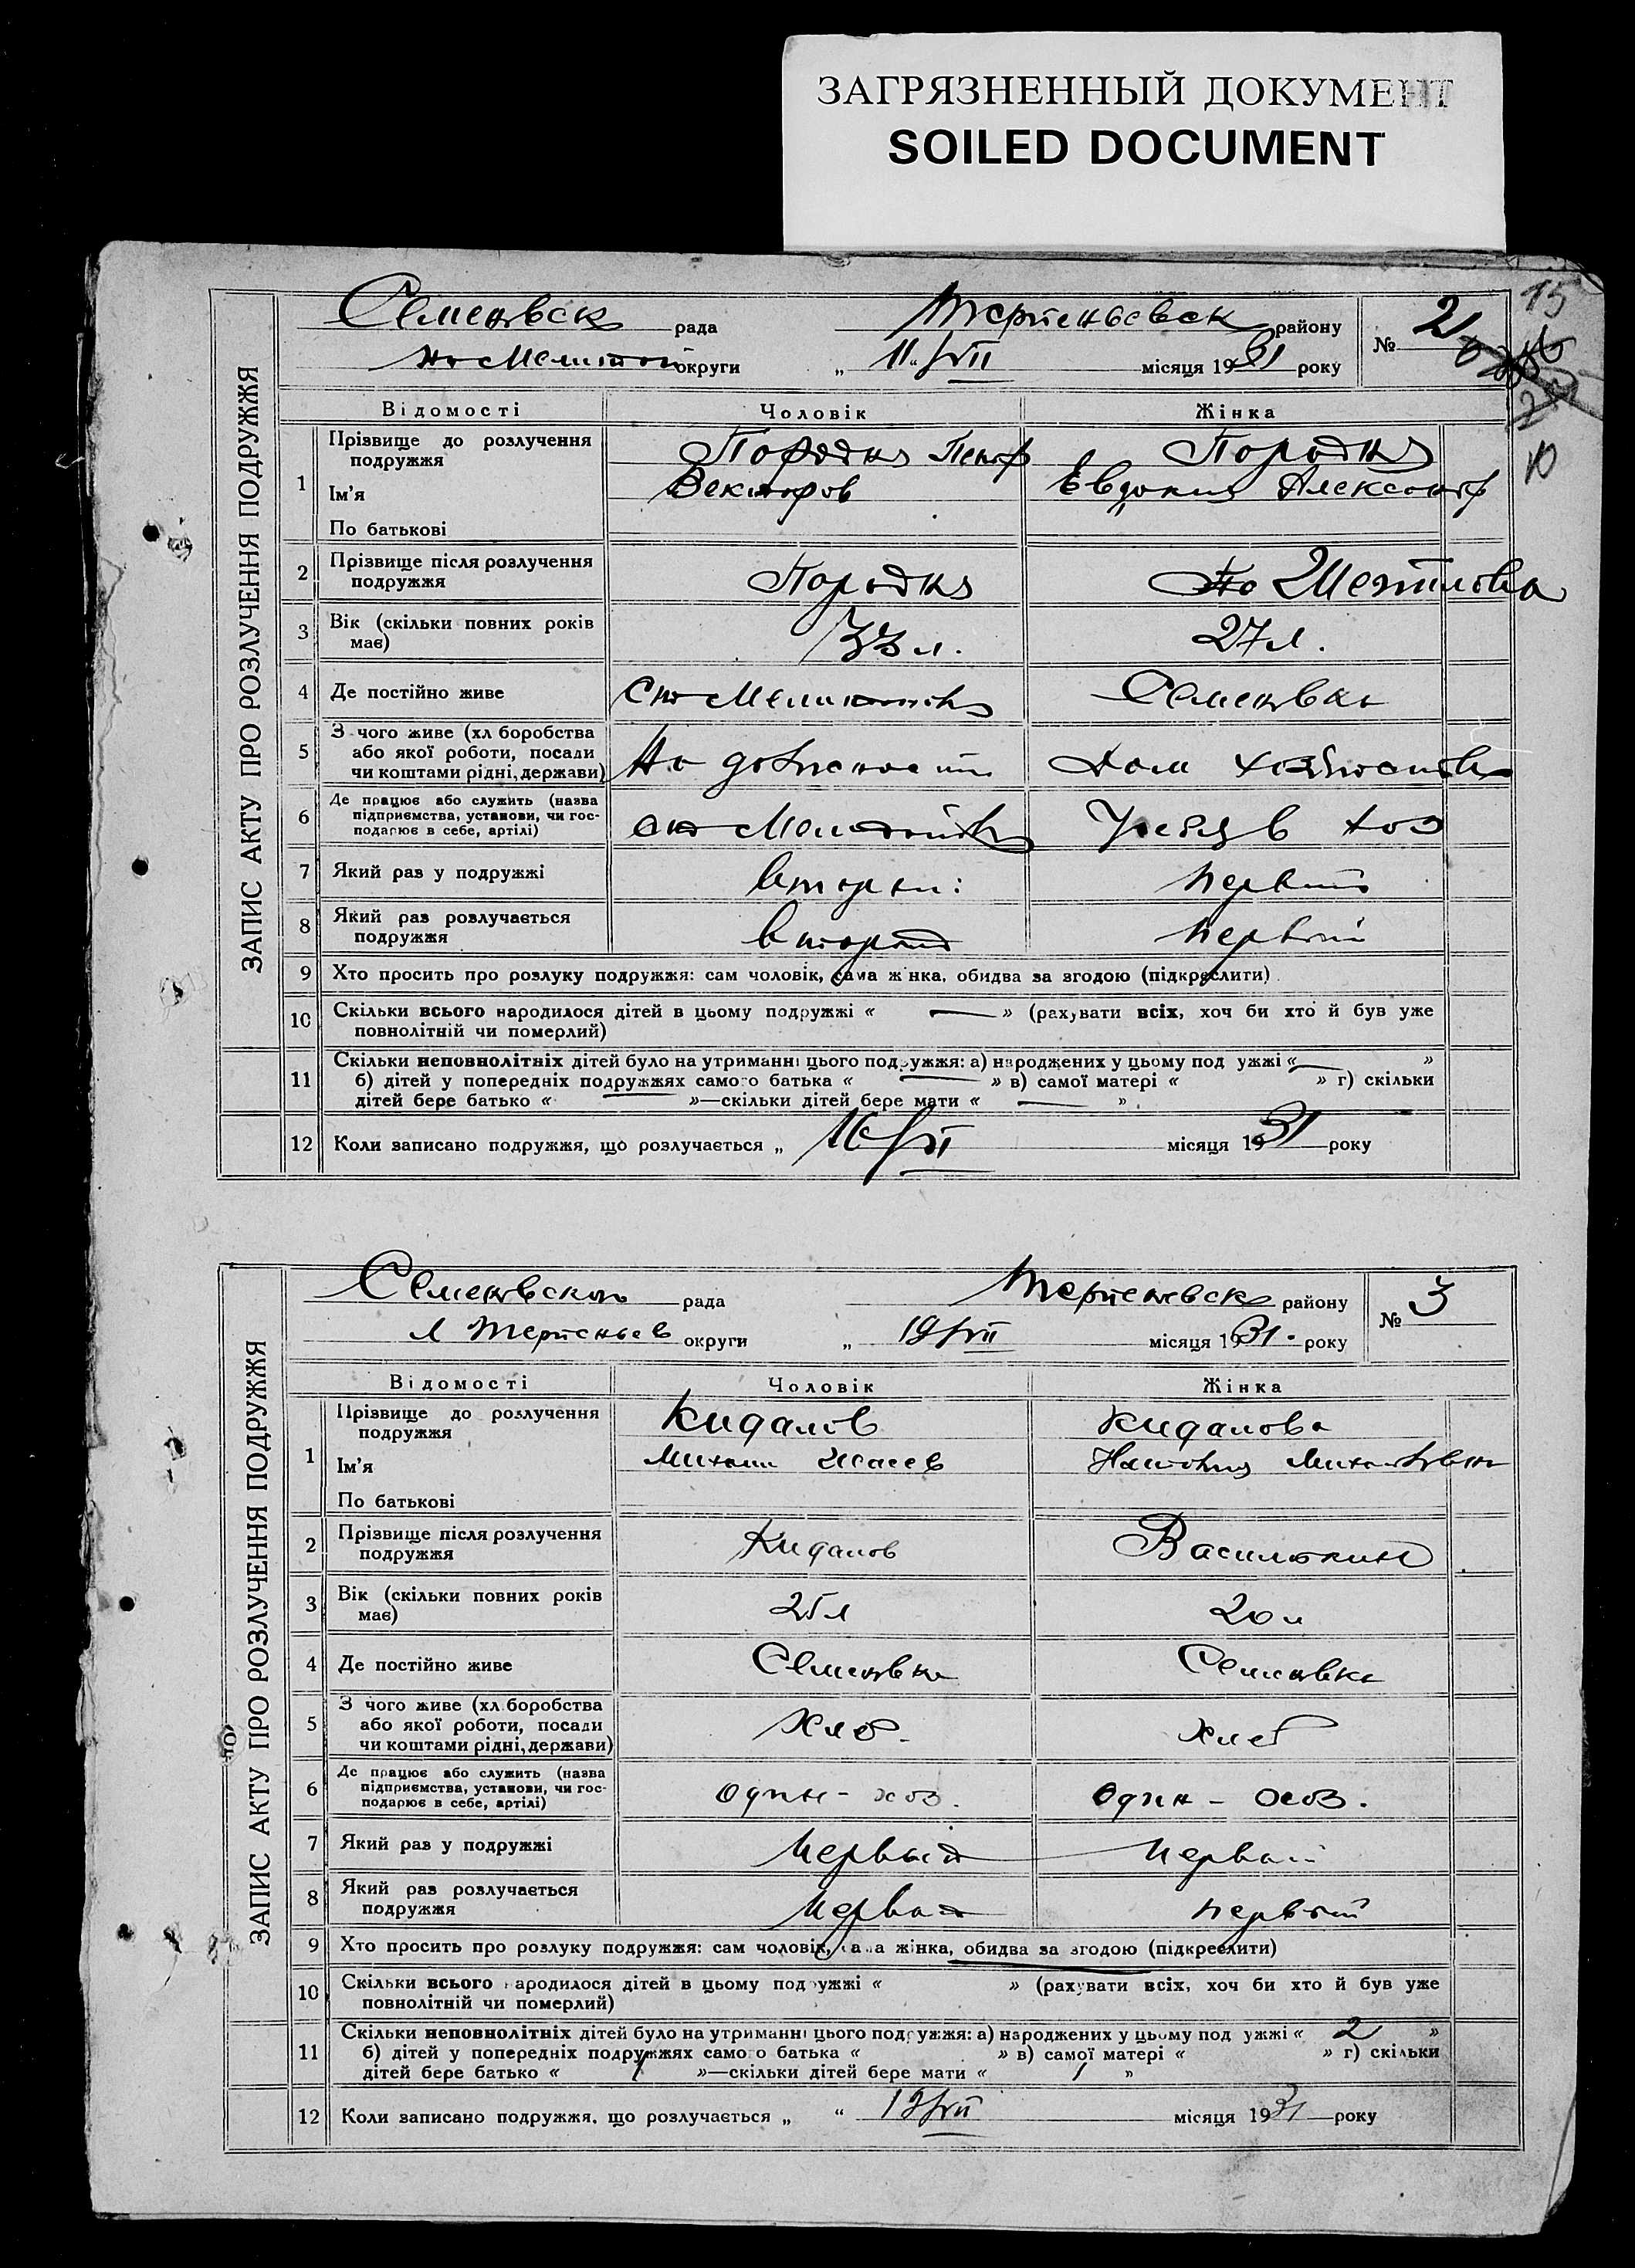 ЗАГРЯЗНЕННЫЙ ДОКУМЕНТ
SOILED DOCUMENT
15
ЗАПИС АКТУ ПРО РОЗЛУЧЕННЯ ПОДРУЖЖЯ
Семеновск рада Терпеньевск району № 2
округи „ 11/VII місяця 1931 року
Відомості Чоловік Жінка
1 Прізвище до розлучення подружжя
Ім'я
По батькові
Евдокия Александр
10
2 Прізвище після розлучення
подружжя
3 Вік (скільки повних років 33 л. 27 л.
має)
4 Де постійно живе Семеновка
5 З чого живе (хліборобства
або якої роботи, посади
чи коштами рідні, держави) На должности Дом хозяйство
6 Де працює або служить (назва
підприємства, установи, чи гос-
подарює в себе, артілі) У себя в хоз
7 Який раз у подружжі вторы первый
8 Який раз розлучається
подружжя второй первый
9 Хто просить про розлуку подружжя: сам чоловік, сама жінка, обидва за згодою (підкреслити)
10 Скільки всього народилося дітей в цьому подружжі « — » (рахувати всіх, хоч би хто й був уже
повнолітній чи померлий)
11 Скільки неповнолітніх дітей було на утриманні цього подружжя: а) народжених у цьому подружжі « — »
б) дітей у попередніх подружжях самого батька « — » в) самої матері « » г) скільки
дітей бере батько « — »—скільки дітей бере мати « — »
12 Коли записано подружжя, що розлучається „ 16/VII місяця 1931 року
ЗАПИС АКТУ ПРО РОЗЛУЧЕННЯ ПОДРУЖЖЯ
Семеновского рада Терпеневск району № 3
Терпеньев округи „ 19/VII місяця 1931 року
Відомості Чоловік Жінка
1 Прізвище до розлучення
подружжя Кидалов Кидалова
Ім'я Михаил Исаев
По батькові
2 Прізвище після розлучення
подружжя Кидалов Василюкина
3 Вік (скільки повних років
має) 25 л 20 л
4 Де постійно живе Семеновка Семеновка
5 З чого живе (хліборобства
або якої роботи, посади
чи коштами рідні, держави) Хлеб. Хлеб
6 Де працює або служить (назва
підприємства, установи, чи гос-
подарює в себе, артілі) Один - хоз. Один - хоз.
7 Який раз у подружжі Первый Первый
8 Який раз розлучається
подружжя Первый первый
9 Хто просить про розлуку подружжя: сам чоловік, сама жінка, обидва за згодою (підкреслити)
10 Скільки всього народилося дітей в цьому подружжі « » (рахувати всіх, хоч би хто й був уже
повнолітній чи померлий)
11 Скільки неповнолітніх дітей було на утриманні цього подружжя: а) народжених у цьому подружжі « 2 »
б) дітей у попередніх подружжях самого батька « » в) самої матері « » г) скільки
дітей бере батько « 1 »—скільки дітей бере мати « 1 »
12 Коли записано подружжя, що розлучається „ “ 19/VII місяця 1931 року